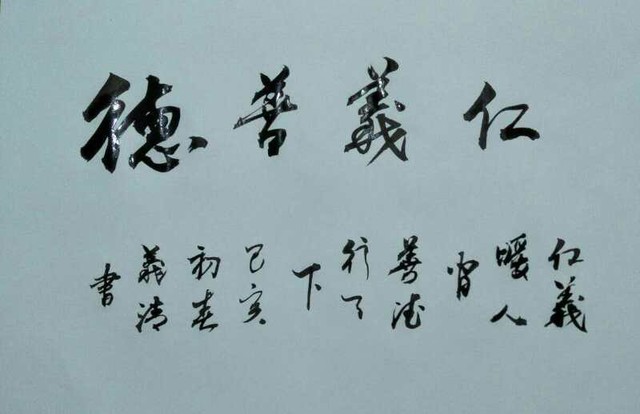 仁義善德
仁義
暖人
間
善德
行天
下
己亥
初春
義清
書